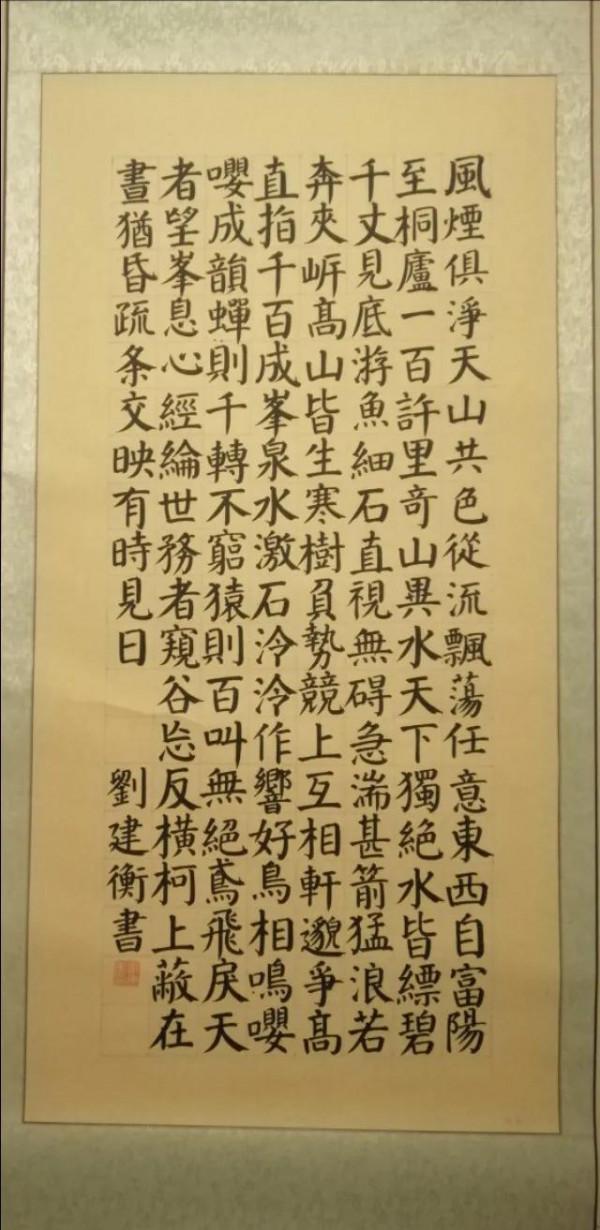 風煙俱淨天山共色從流飄蕩任意東西自富陽
至桐廬一百許里奇山異水天下獨絕水皆縹碧
千丈見底游魚細石直視無碍急湍甚箭猛浪若
奔夾岍高山皆生寒樹負勢競上互相軒邈爭高
直指千百成峯泉水激石泠泠作響好鳥相鳴嚶
嚶成韻蟬則千轉不窮猿則百叫無絕鳶飛戾天
者望峯息心經綸世務者窺谷忘反橫柯上蔽在
晝猶昏疏条交映有時見日
劉建衡書